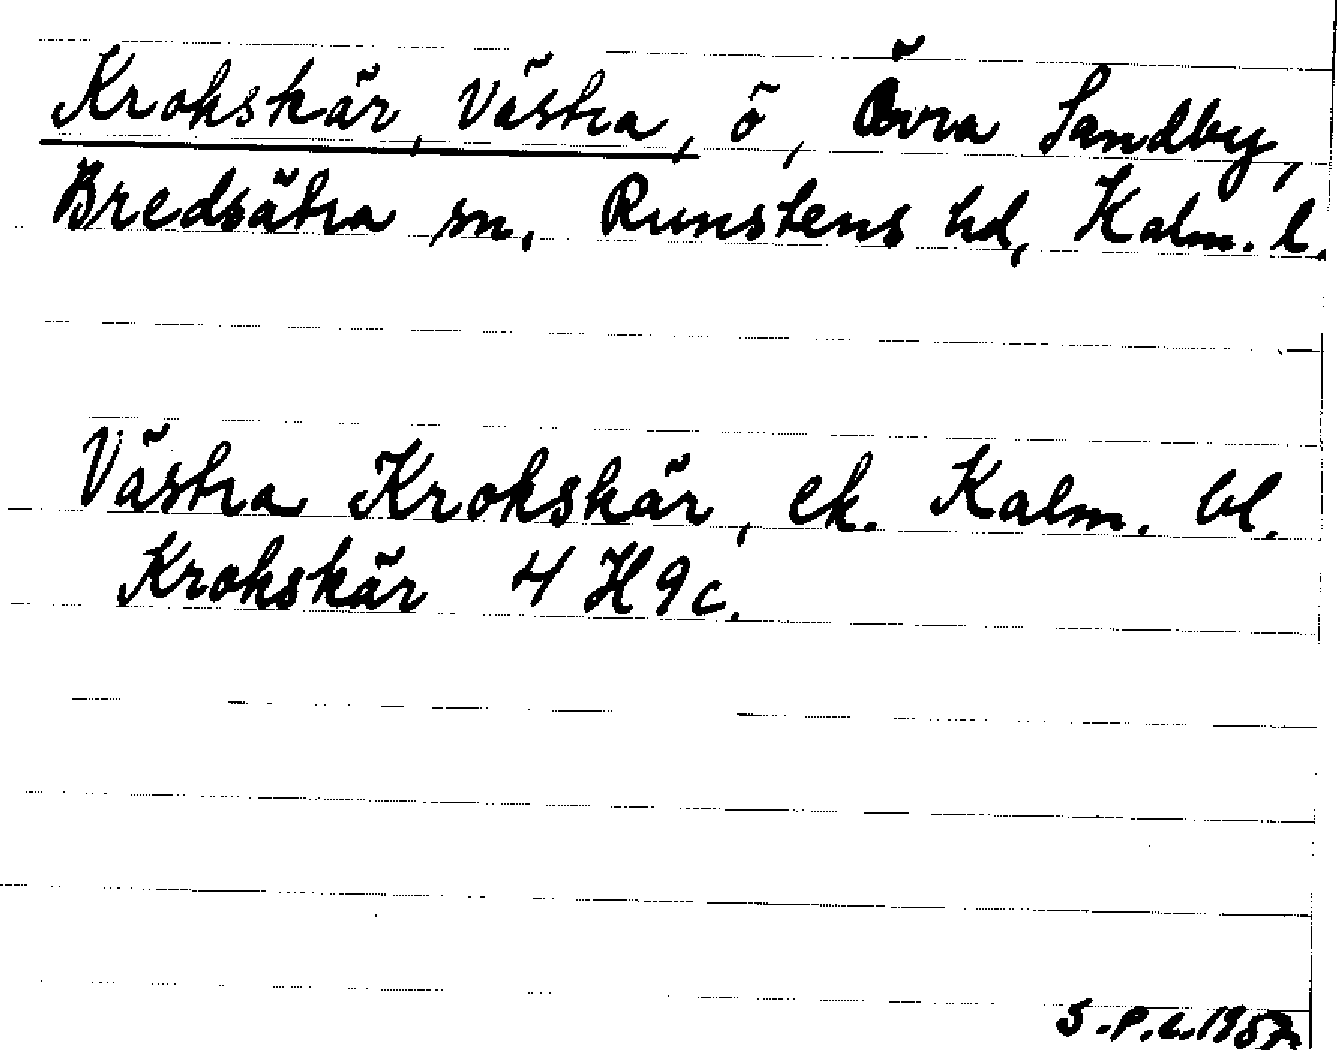 Krokskär, Västra, ö, Övra Sandby,
Bredsätra sn, Runstens hd, Kalm. l.
Västra Krokskär, ek. Kalm. bl.
Krokskär 4 H 9 c.
S.-P.L. 1957